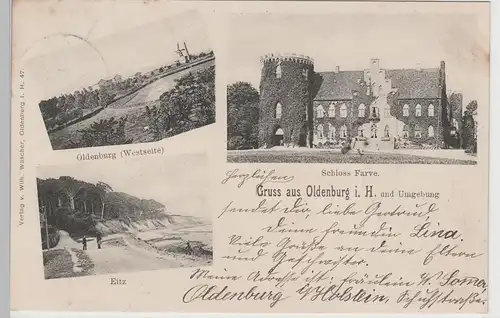 Verlag v. Wilh. Wascher, Oldenburg i. H. 47
Oldenburg (Westseite)
Schloss Farve.
Eitz
Gruss aus Oldenburg i. H. und Umgebung
Herzlichen
sendet dir, liebe Gertrud
deine Freundin Lina.
Viele Grüße an deine Eltern
und Geschwister.
Meine Adresse ist: Fräulein W. Somer,
Oldenburg i/Holstein, Schuhstraße